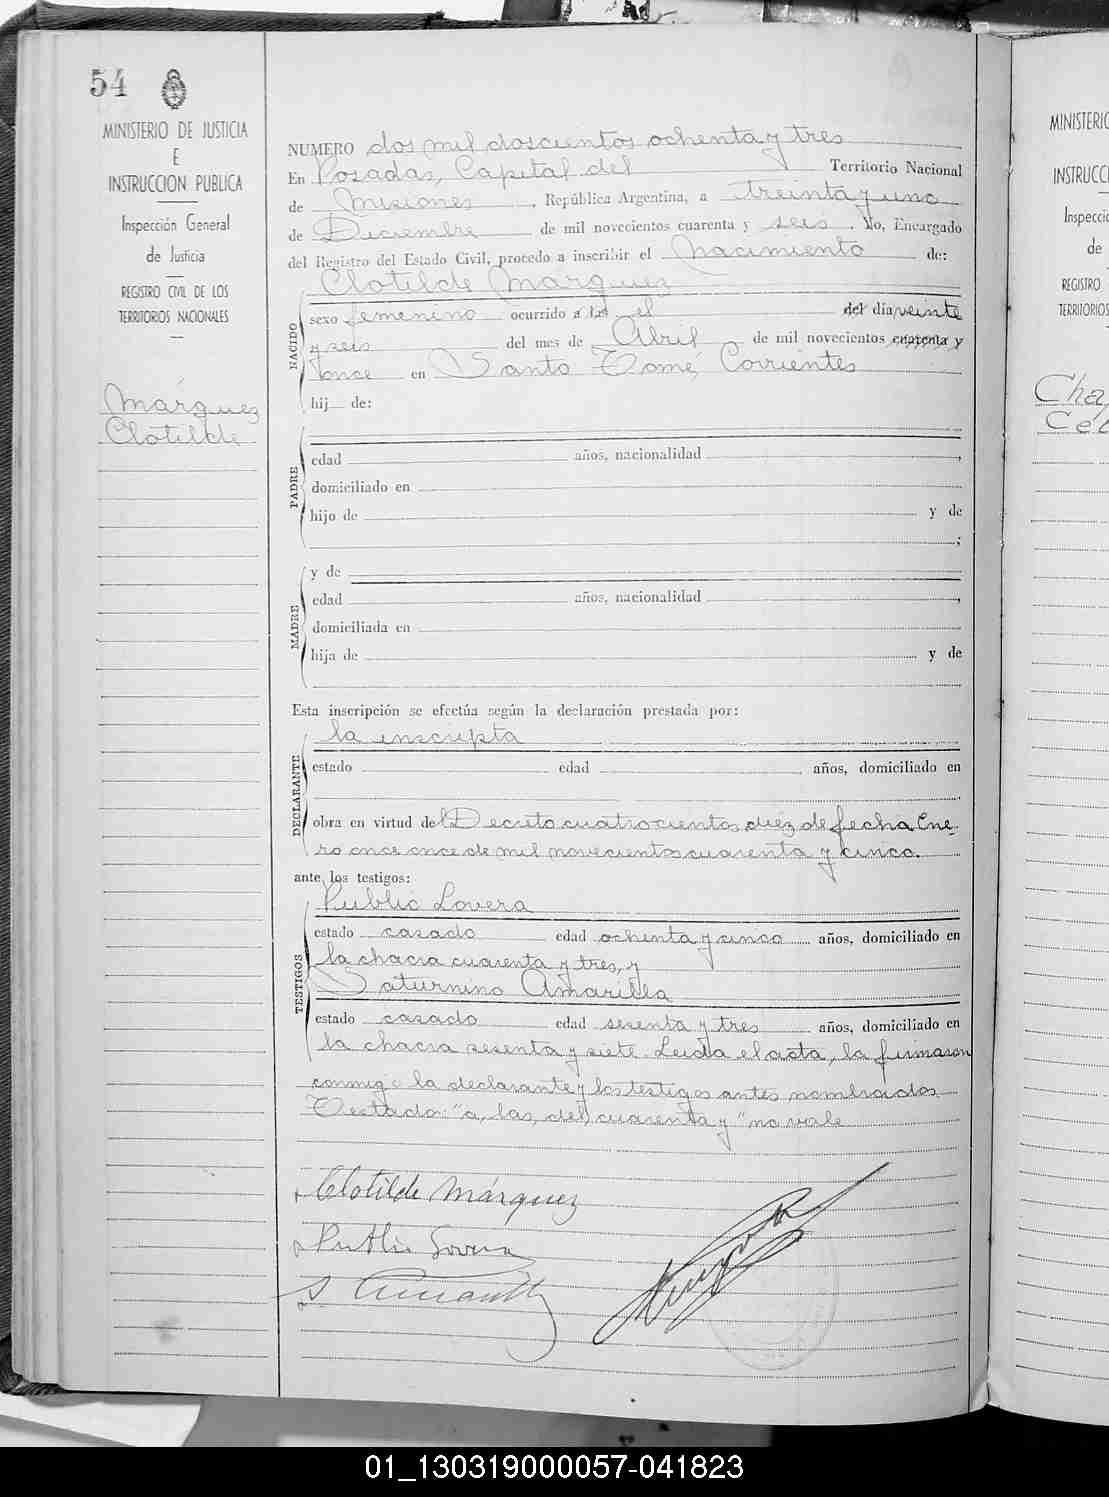 54
MINISTERIO DE JUSTICIA
E
INSTRUCCION PUBLICA
Inspección General
de Justicia
REGISTRO CIVIL DE LOS
TERRITORIOS NACIONALES
Márquez
Clotilde
NUMERO dos mil doscientos ochenta y tres
En Posadas, Capital del Territorio Nacional
de Misiones, República Argentina, a treinta y uno
de Diciembre de mil novecientos cuarenta y seis. Yo, Encargado
del Registro del Estado Civil, procedo a inscribir el nacimiento de:
Clotilde Márquez
NACIDO
sexo femenino ocurrido a las el del día veinte
y seis del mes de Abril de mil novecientos cuarenta y
once en Santo Tomé, Corrientes
hij de:
PADRE
edad años, nacionalidad ,
domiciliado en
hijo de y de
;
MADRE
y de
edad años, nacionalidad ,
domiciliada en
hija de y de
Esta inscripción se efectúa según la declaración prestada por:
DECLARANTE
la inscripta
estado edad años, domiciliado en
obra en virtud del Decreto cuatrocientos diez de fecha Ene-
ro once once de mil novecientos cuarenta y cinco.
ante los testigos:
TESTIGOS
Publio Lovera
estado casado edad ochenta y cinco años, domiciliado en
la chacra cuarenta y tres, y
Saturnino Amarilla
estado casado edad sesenta y tres años, domiciliado en
la chacra sesenta y siete. Leída el acta, la firmaron
conmigo la declarante y los testigos antes nombrados.
Testado: "a, las, del, cuarenta y" no vale
Clotilde Márquez
Publio Lovera
S Amarilla
MINISTERIO
INSTRUCC
Inspecció
de
REGISTRO
TERRITORIOS
Cha
Cel
01_130319000057-041823